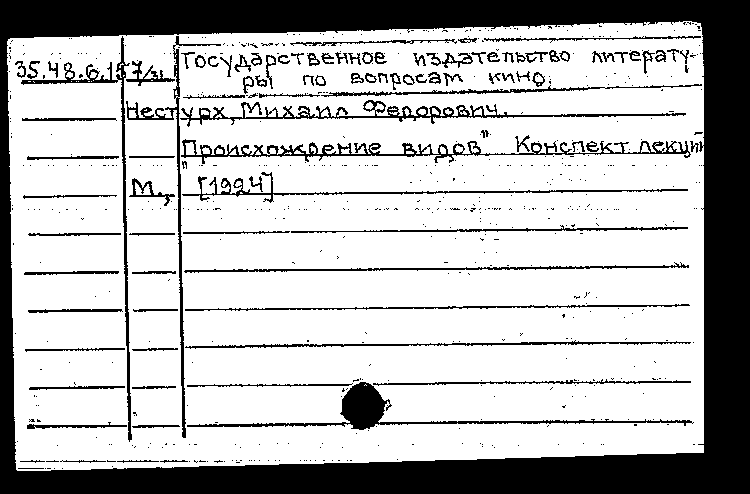 35.48.6.157/31 Государственное издательство литерату-
ры по вопросам кино.
Нестурх, Михаил Федорович.
"Происхождение видов" Конспект лекции
М., [1924]